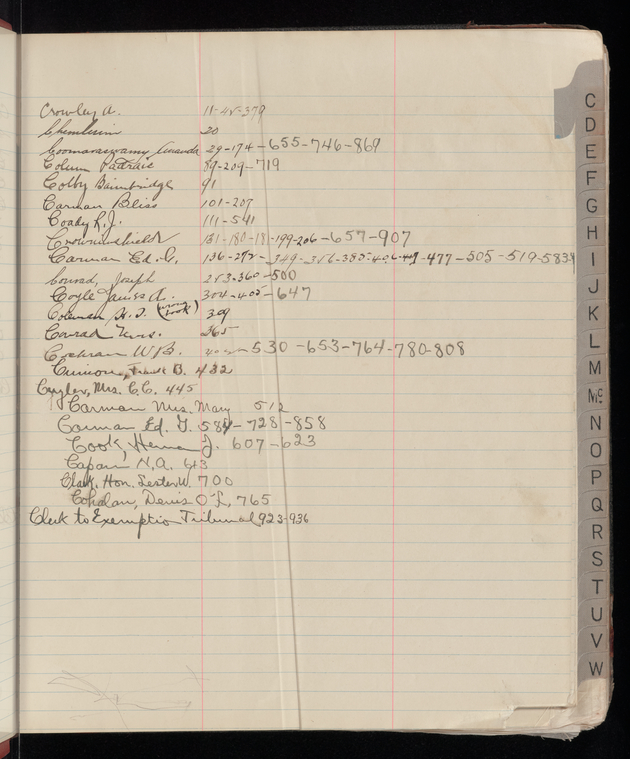 Crowley A. 11-48-379
20
Coomaraswamy Ananda 29-174-655-746-869
Colum Padraic 89-209-719
Colby Bainbridge 91
Carman Bliss 101-207
Coady R.J. 111-541
Crowninshield 131-180-181-199-206-657-907
Carman Ed. G. 477-505-519-583
Conrad, Joseph 253-360-500
Coyle James A. 304-405-647
Coleman H. J. (wrong book) 309
Conrad 365
Cochran W.B. 530-653-764-780-808
B. 432
Cuyler, Mrs. C.C. 445
Carman Mrs. Mary 512
Carman Ed. G. 584-728-858
Cook, Herman J. 607-623
N.A. 643
Clark, Hon. Lester W. 700
Cohalan, Denis O'L. 765
Clerk to Exemption Tribunal 923-936
C
D
E
F
G
H
I
J
K
L
M
Mc
N
O
P
Q
R
S
T
U
V
W